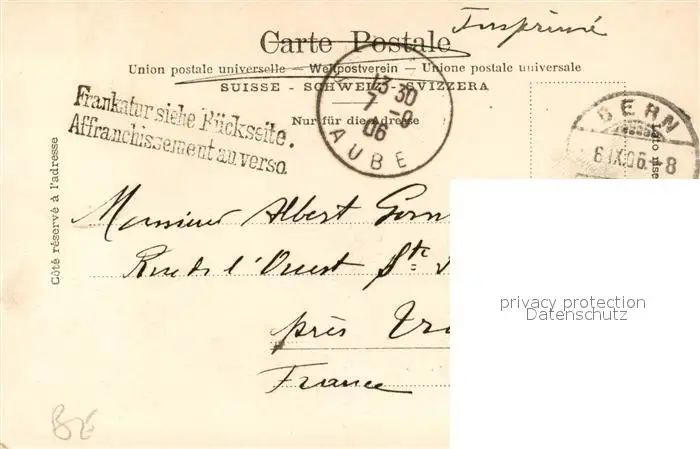 Imprimé
Carte Postale
Union postale universelle – Weltpostverein – Unione postale universale
SUISSE - SCHWEIZ - SVIZZERA
Nur für die Adresse
Frankatur siehe Rückseite.
Affranchissement au verso.
13 30
7 - 9
06
AUBE
BERN
6.IX.06.-8
Côté réservé à l'adresse
Monsieur Albert
Rue de l'Ouest Ste
près
France
privacy protection
Datenschutz
BE